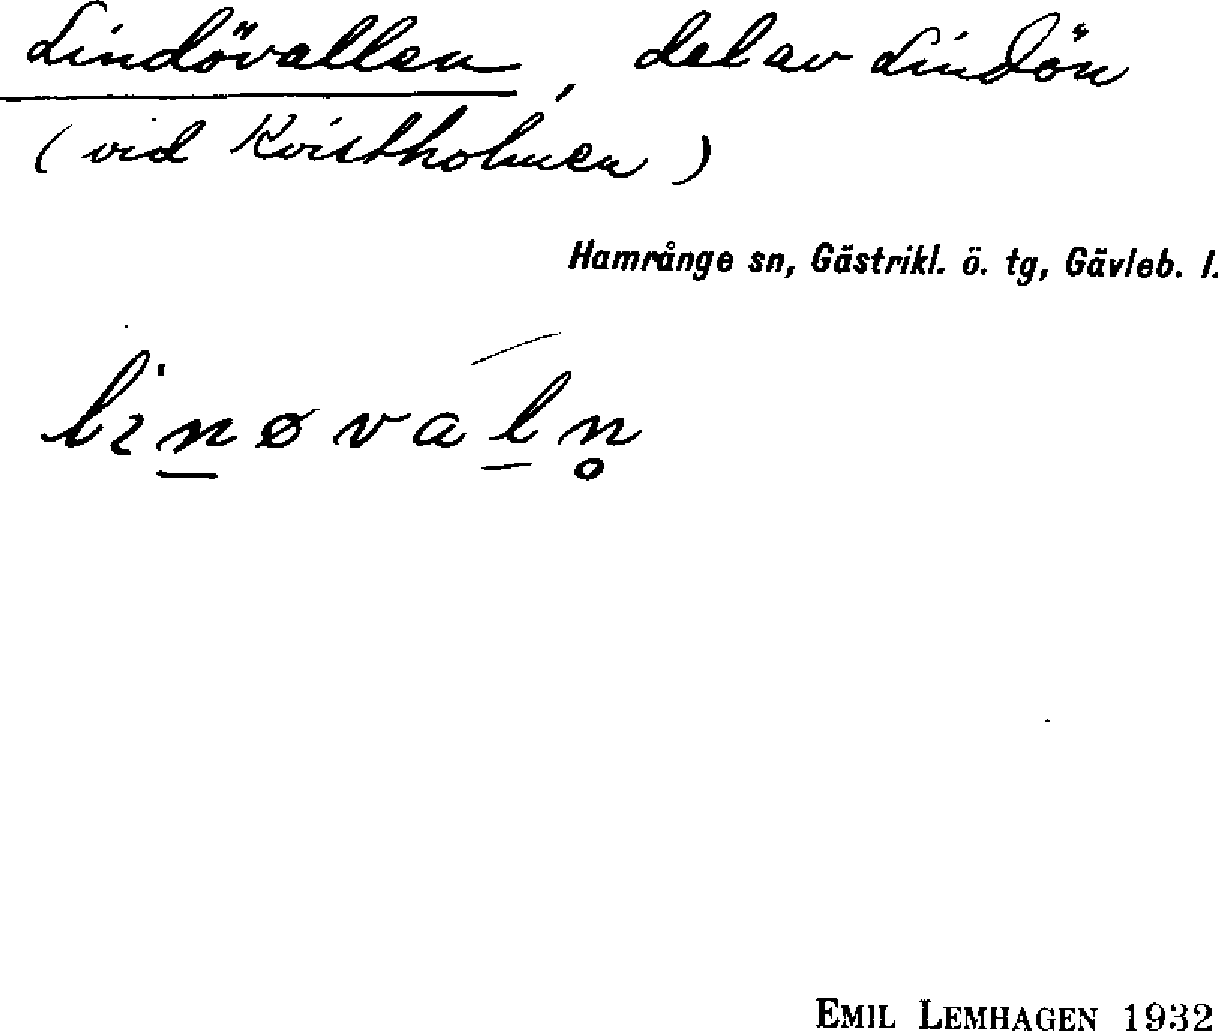 Lindövallen, del av Lindön
(vid Kvistholmen)
Hamrånge sn, Gästrikl. ö. tg, Gävleb. l.
lɪ'n̲øvàl̲n̥
EMIL LEMHAGEN 1932